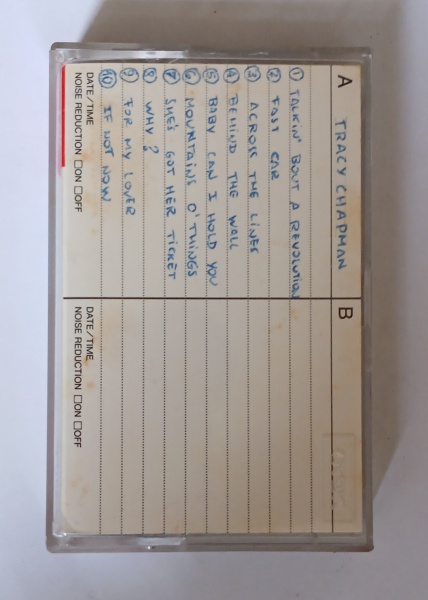 A TRACY CHAPMAN
① TALKIN' BOUT A REVOLUTION
② FAST CAR
③ ACROSS THE LINES
④ BEHIND THE WALL
⑤ BABY CAN I HOLD YOU
⑥ MOUNTAINS O' THINGS
⑦ SHE'S GOT HER TICKET
⑧ WHY?
⑨ FOR MY LOVER
⑩ IF NOT NOW
DATE/TIME
NOISE REDUCTION □ON □OFF
B
DATE/TIME
NOISE REDUCTION □ON □OFF